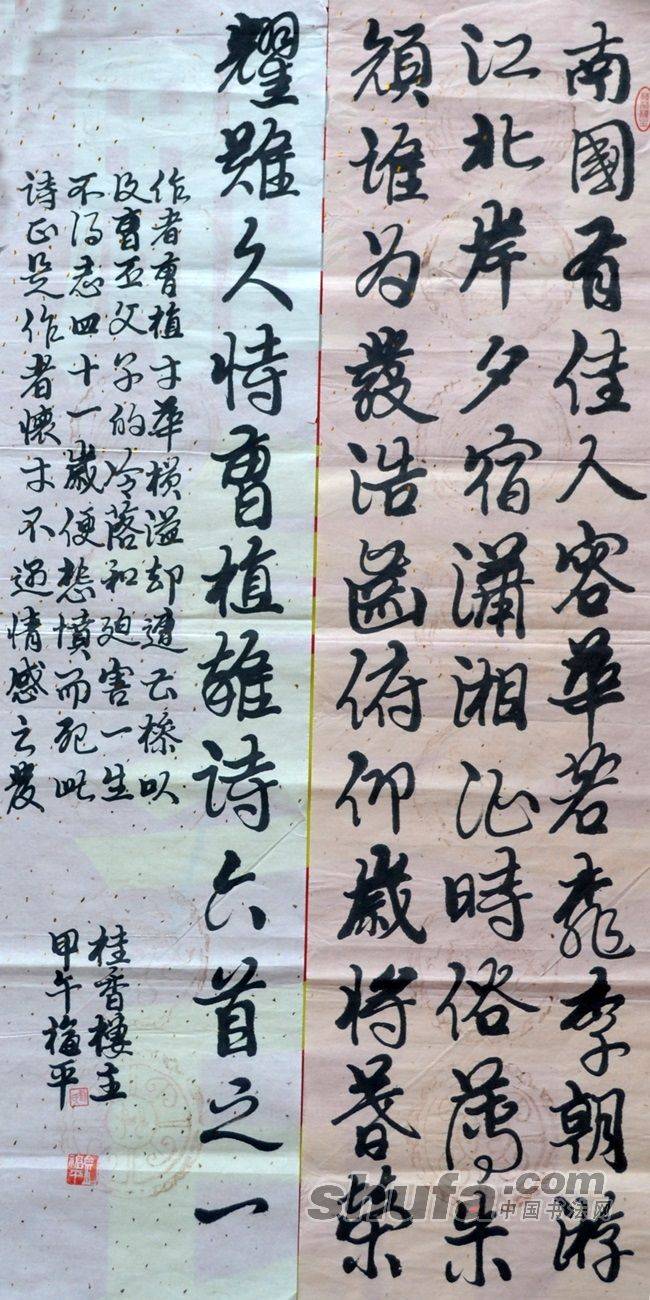 南國有佳人容華若桃李朝游
江北岸夕宿瀟湘沚時俗薄朱
顏誰为發浩齒俯仰歲將暮榮
耀難久恃曹植雜诗六首之一
作者曹植才華横溢却遭以
及曹丕父子的冷落和迫害一生
不得志四十一歲便愁憤而死此
诗正是作者懷才不遇情感之發
桂香樓主
甲午梅平
shufa.com
中国书法网